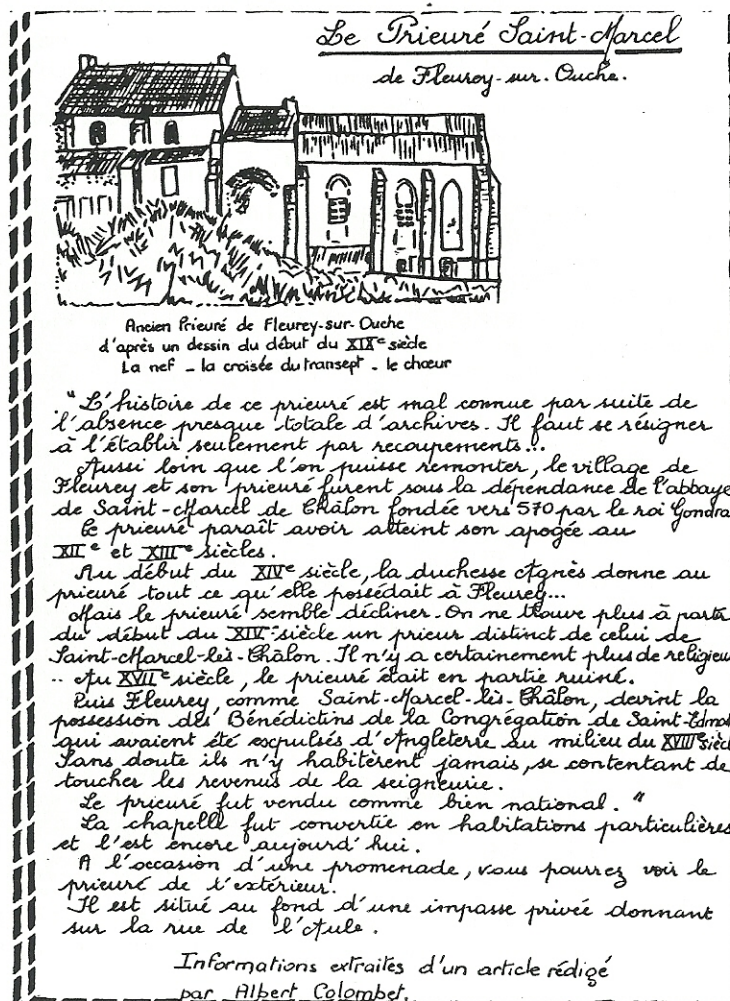 Le Prieuré Saint-Marcel
de Fleurey-sur-Ouche.
Ancien Prieuré de Fleurey-sur-Ouche
d'après un dessin du début du XIXe siècle
La nef - la croisée du transept - le chœur
"L'histoire de ce prieuré est mal connue par suite de
l'absence presque totale d'archives. Il faut se résigner
à l'établir seulement par recoupements...
Aussi loin que l'on puisse remonter, le village de
Fleurey et son prieuré furent sous la dépendance de l'abbaye
de Saint-Marcel de Châlon fondée vers 570 par le roi Gontra
Ce prieuré paraît avoir atteint son apogée au
XIIe et XIIIe siècles.
Au début du XIVe siècle, la duchesse Agnès donne au
prieuré tout ce qu'elle possédait à Fleurey...
Mais le prieuré semble décliner. On ne trouve plus à parti
du début du XIVe siècle un prieur distinct de celui de
Saint-Marcel-lès-Châlon. Il n'y a certainement plus de religieu
.. Au XVIIe siècle, le prieuré était en partie ruiné.
Puis Fleurey, comme Saint-Marcel-lès-Châlon, devint la
possession des Bénédictins de la Congrégation de Saint-Edmo
qui avaient été expulsés d'Angleterre au milieu du XVIIIe siècl
Sans doute ils n'y habitèrent jamais, se contentant de
toucher les revenus de la seigneurie.
Le prieuré fut vendu comme bien national."
La chapelle fut convertie en habitations particulières
et l'est encore aujourd'hui.
A l'occasion d'une promenade, vous pourrez voir le
prieuré de l'extérieur.
Il est situé au fond d'une impasse privée donnant
sur la rue de l'Aule.
Informations extraites d'un article rédigé
par Albert Colombet.